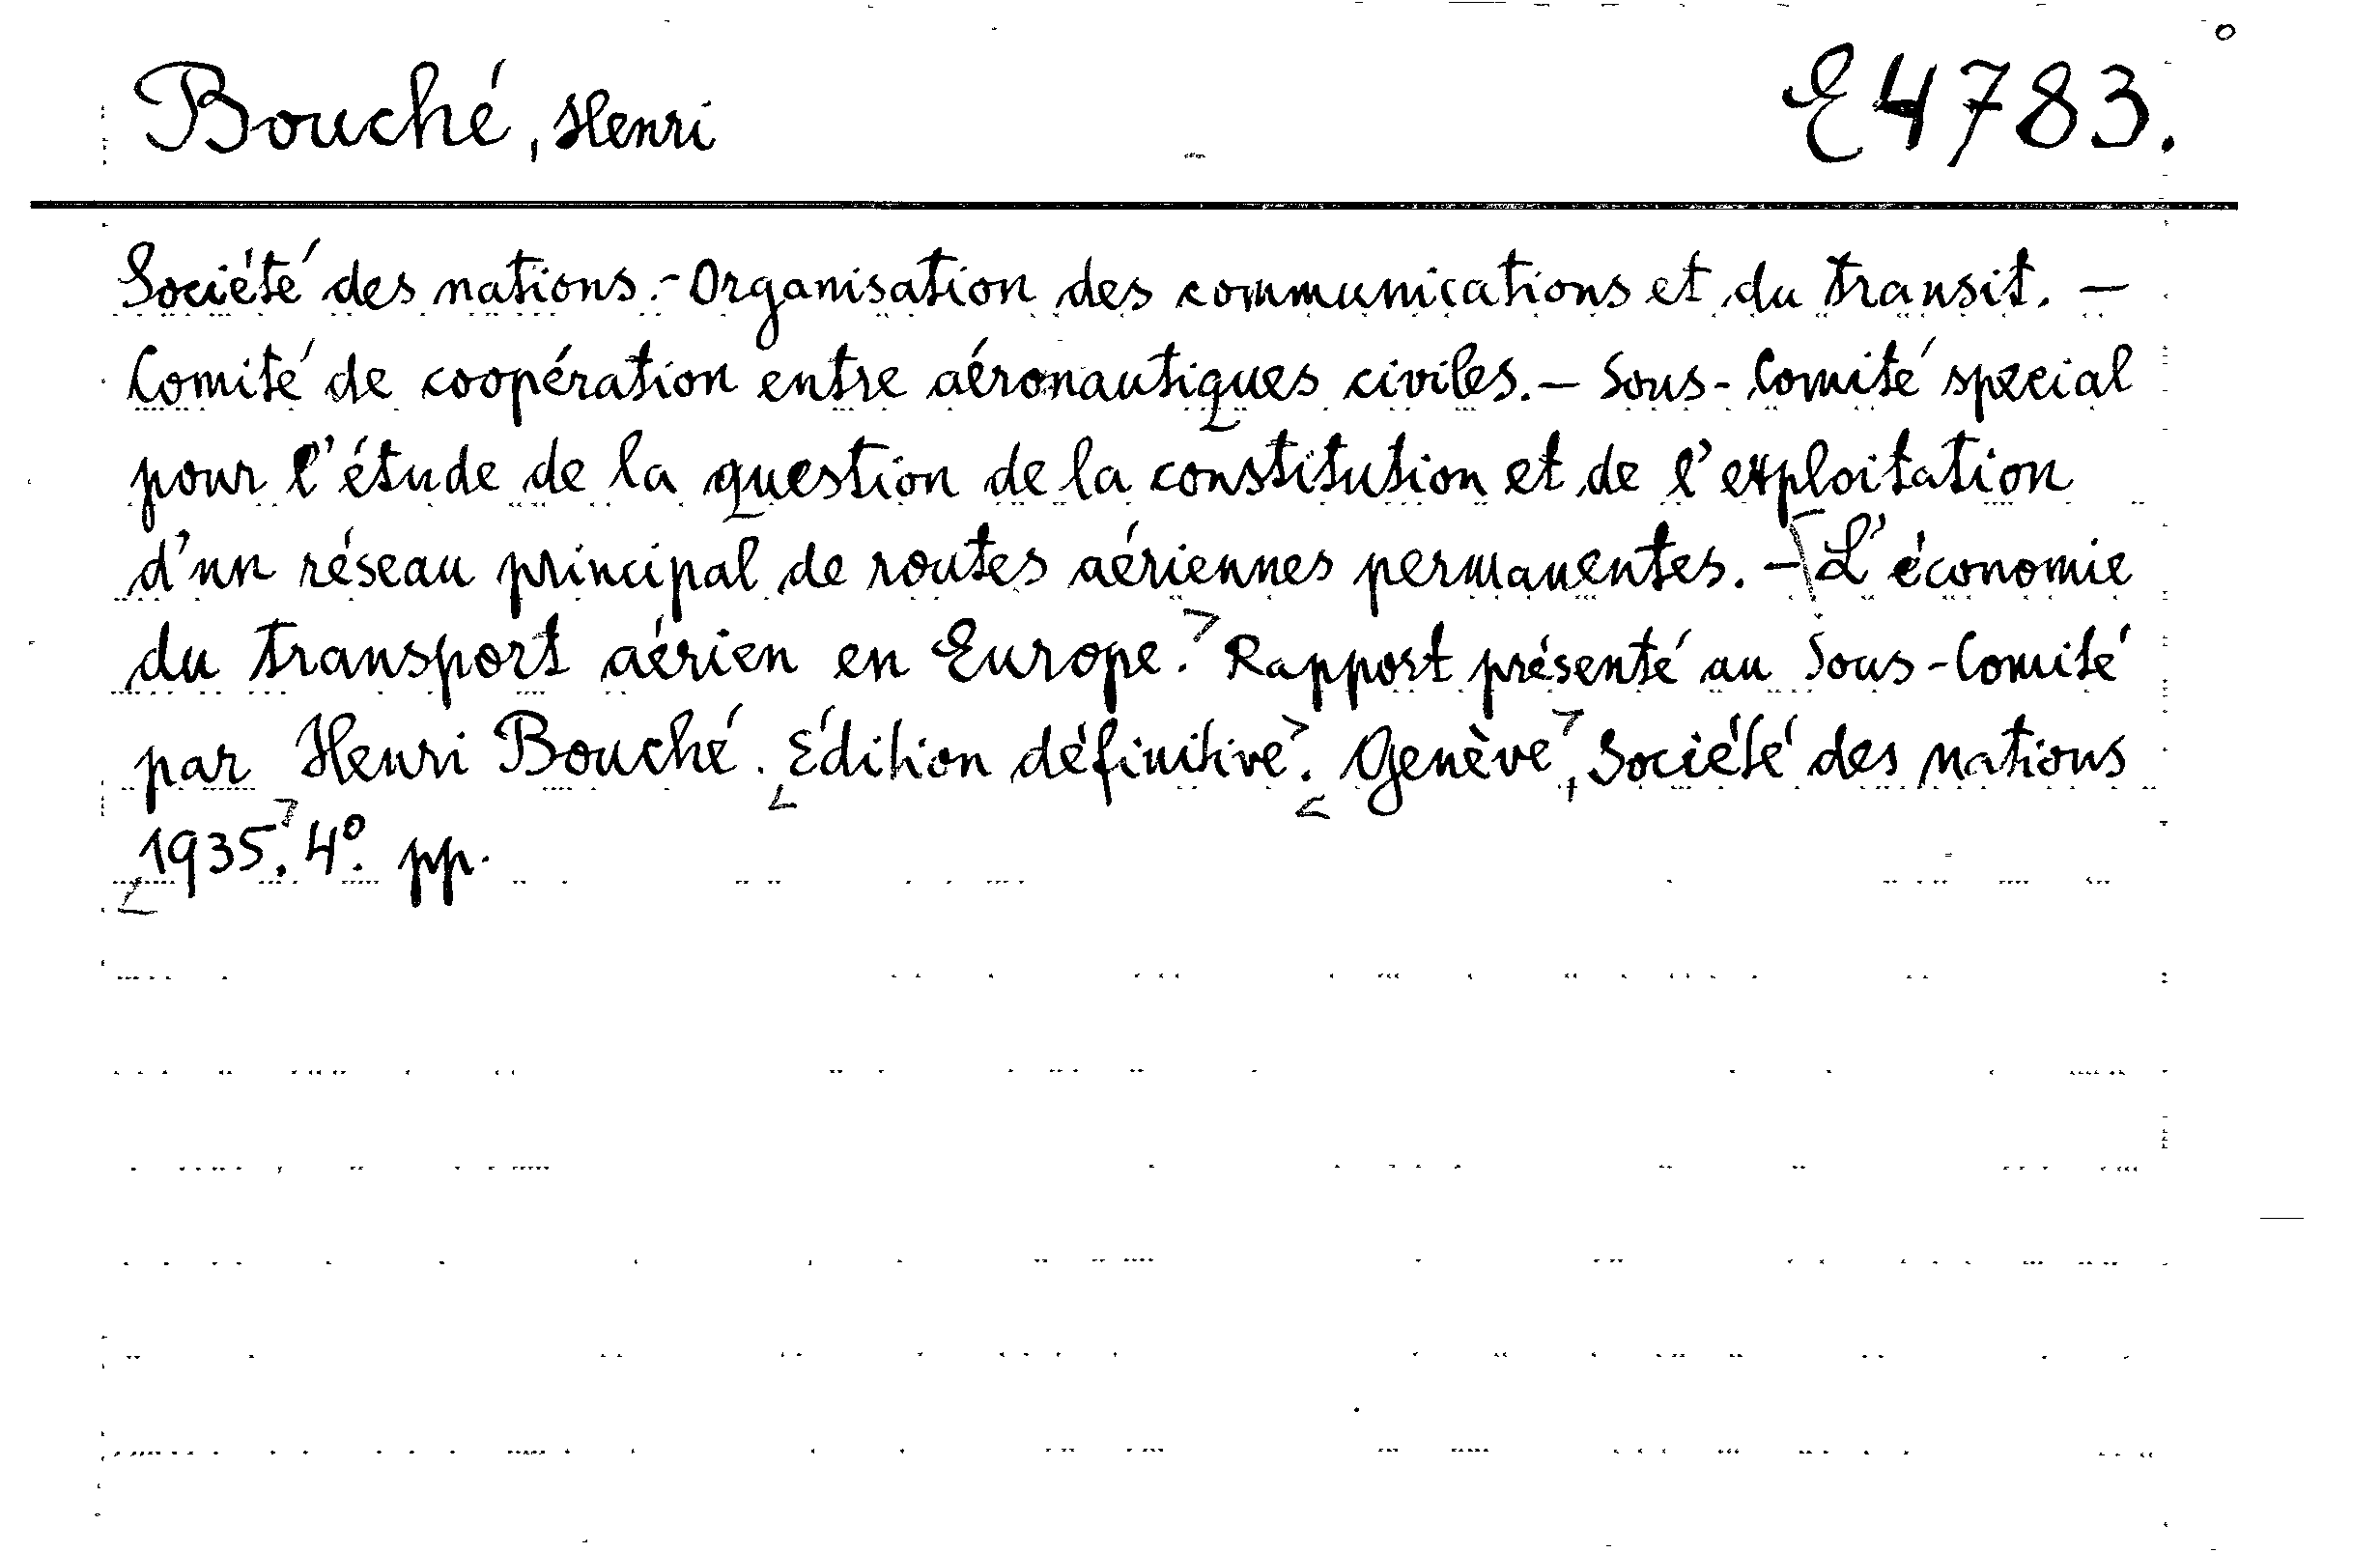 Bouché, Henri
E4783.
Société des nations.- Organisation des communications et du transit. -
Comité de coopération entre aéronautiques civiles. - Sous-Comité special
pour l'étude de la question de la constitution et de l'exploitation
d'un réseau principal de routes aériennes permanentes. - L'économie
du transport aérien en Europe. Rapport présenté au Sous-Comité
par Henri Bouché. Édition définitive. Genève, Société des nations
1935. 4°. pp.